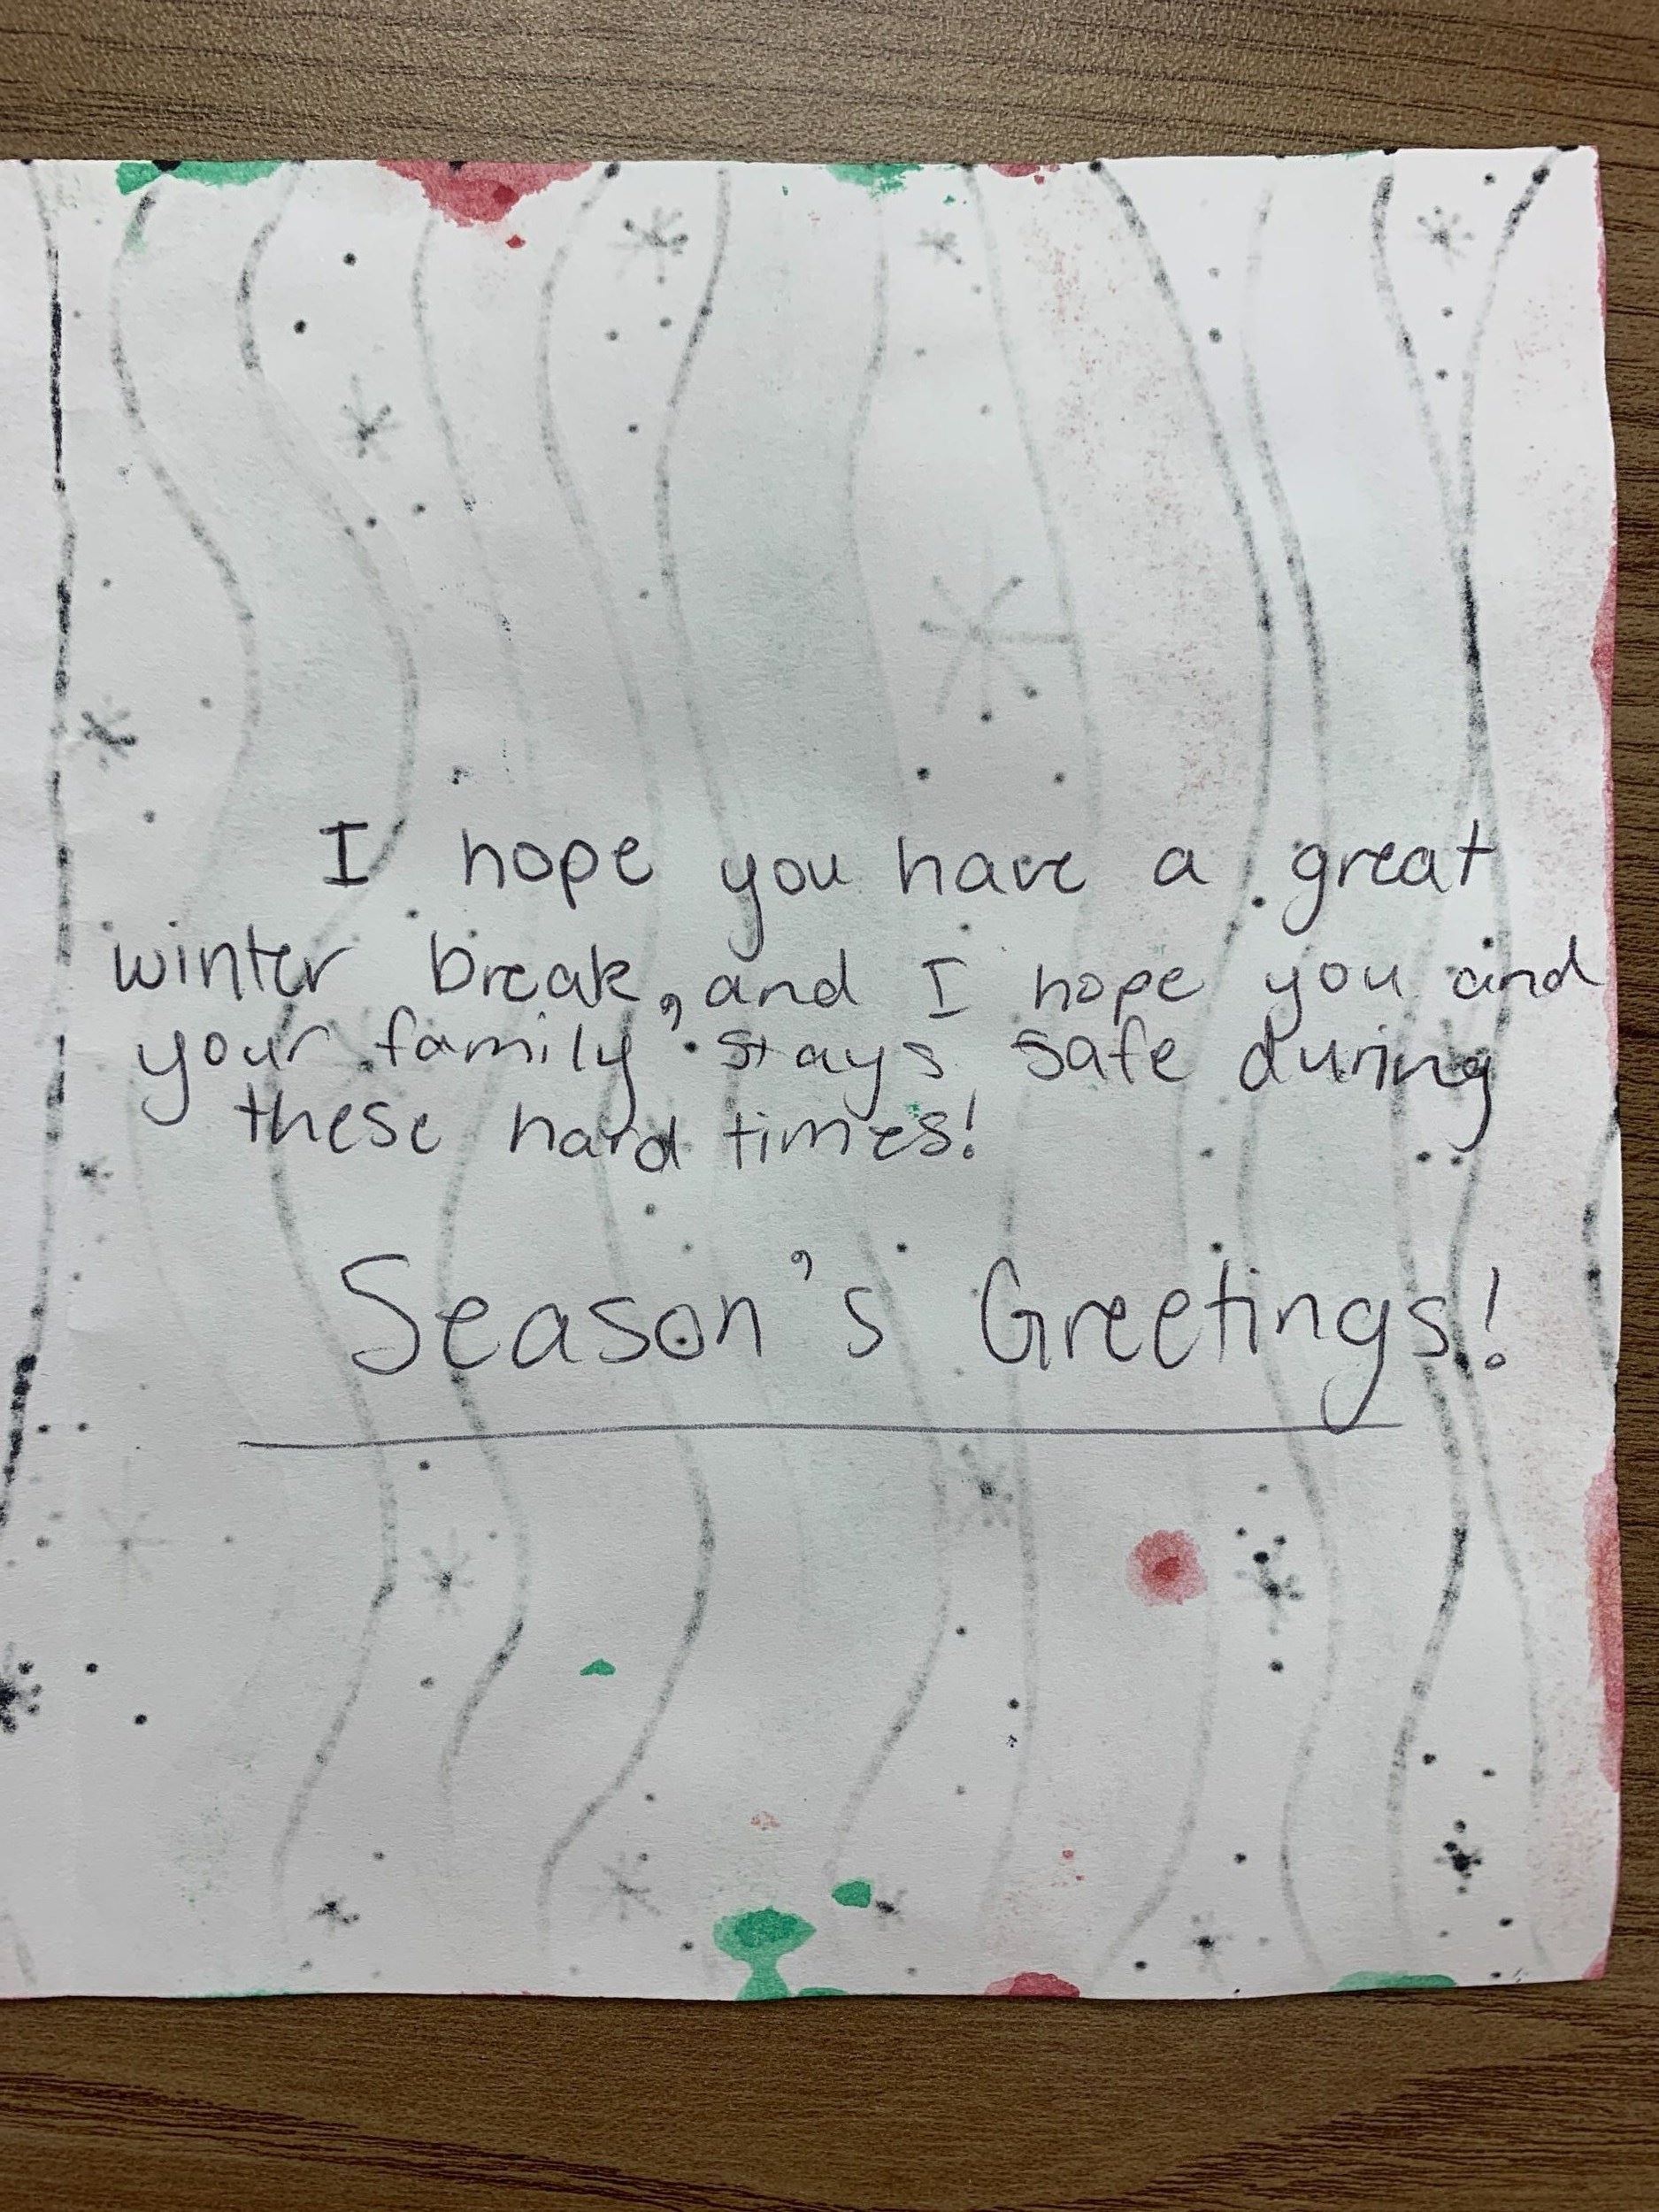 I hope you have a great
winter break, and I hope you and
your family stays safe during
these hard times!
Season's Greetings!